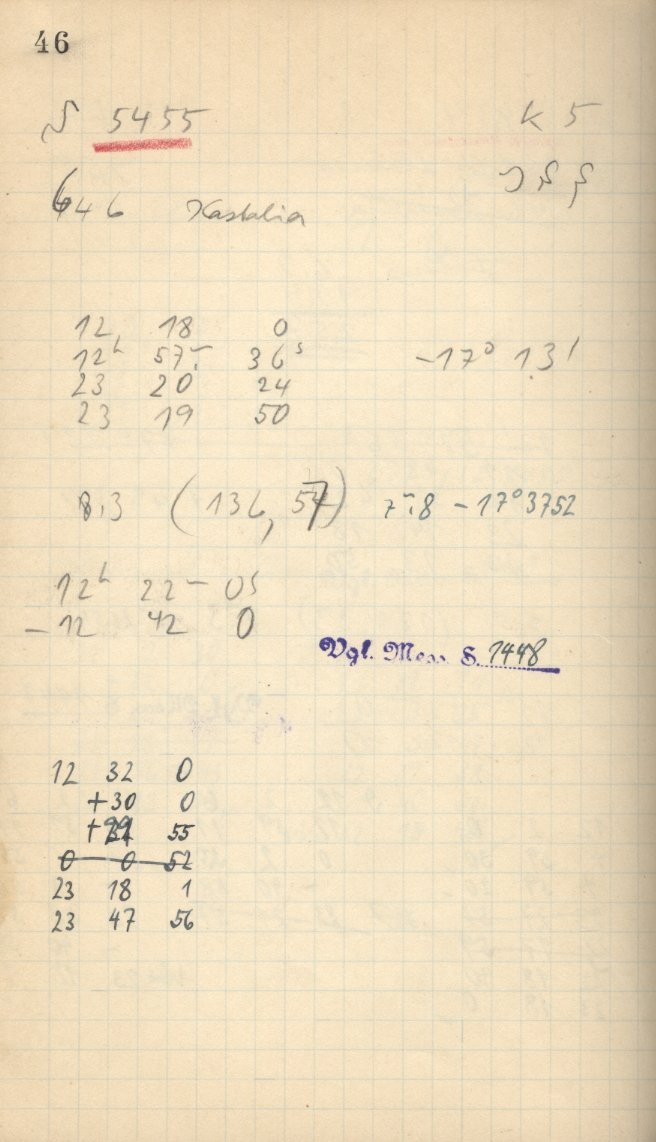 46
5455
K 5
646 Kastalia
12 18 0
12h 57m. 36s -17° 13'
23 20 24
23 19 50
8.3 (136, 57) 7m.8 -17°3752
12h 22m 0s
-12 42 0
Vgl. Mess. S. 1448
12 32 0
+30 0
55
0 0 52
23 18 1
23 47 56